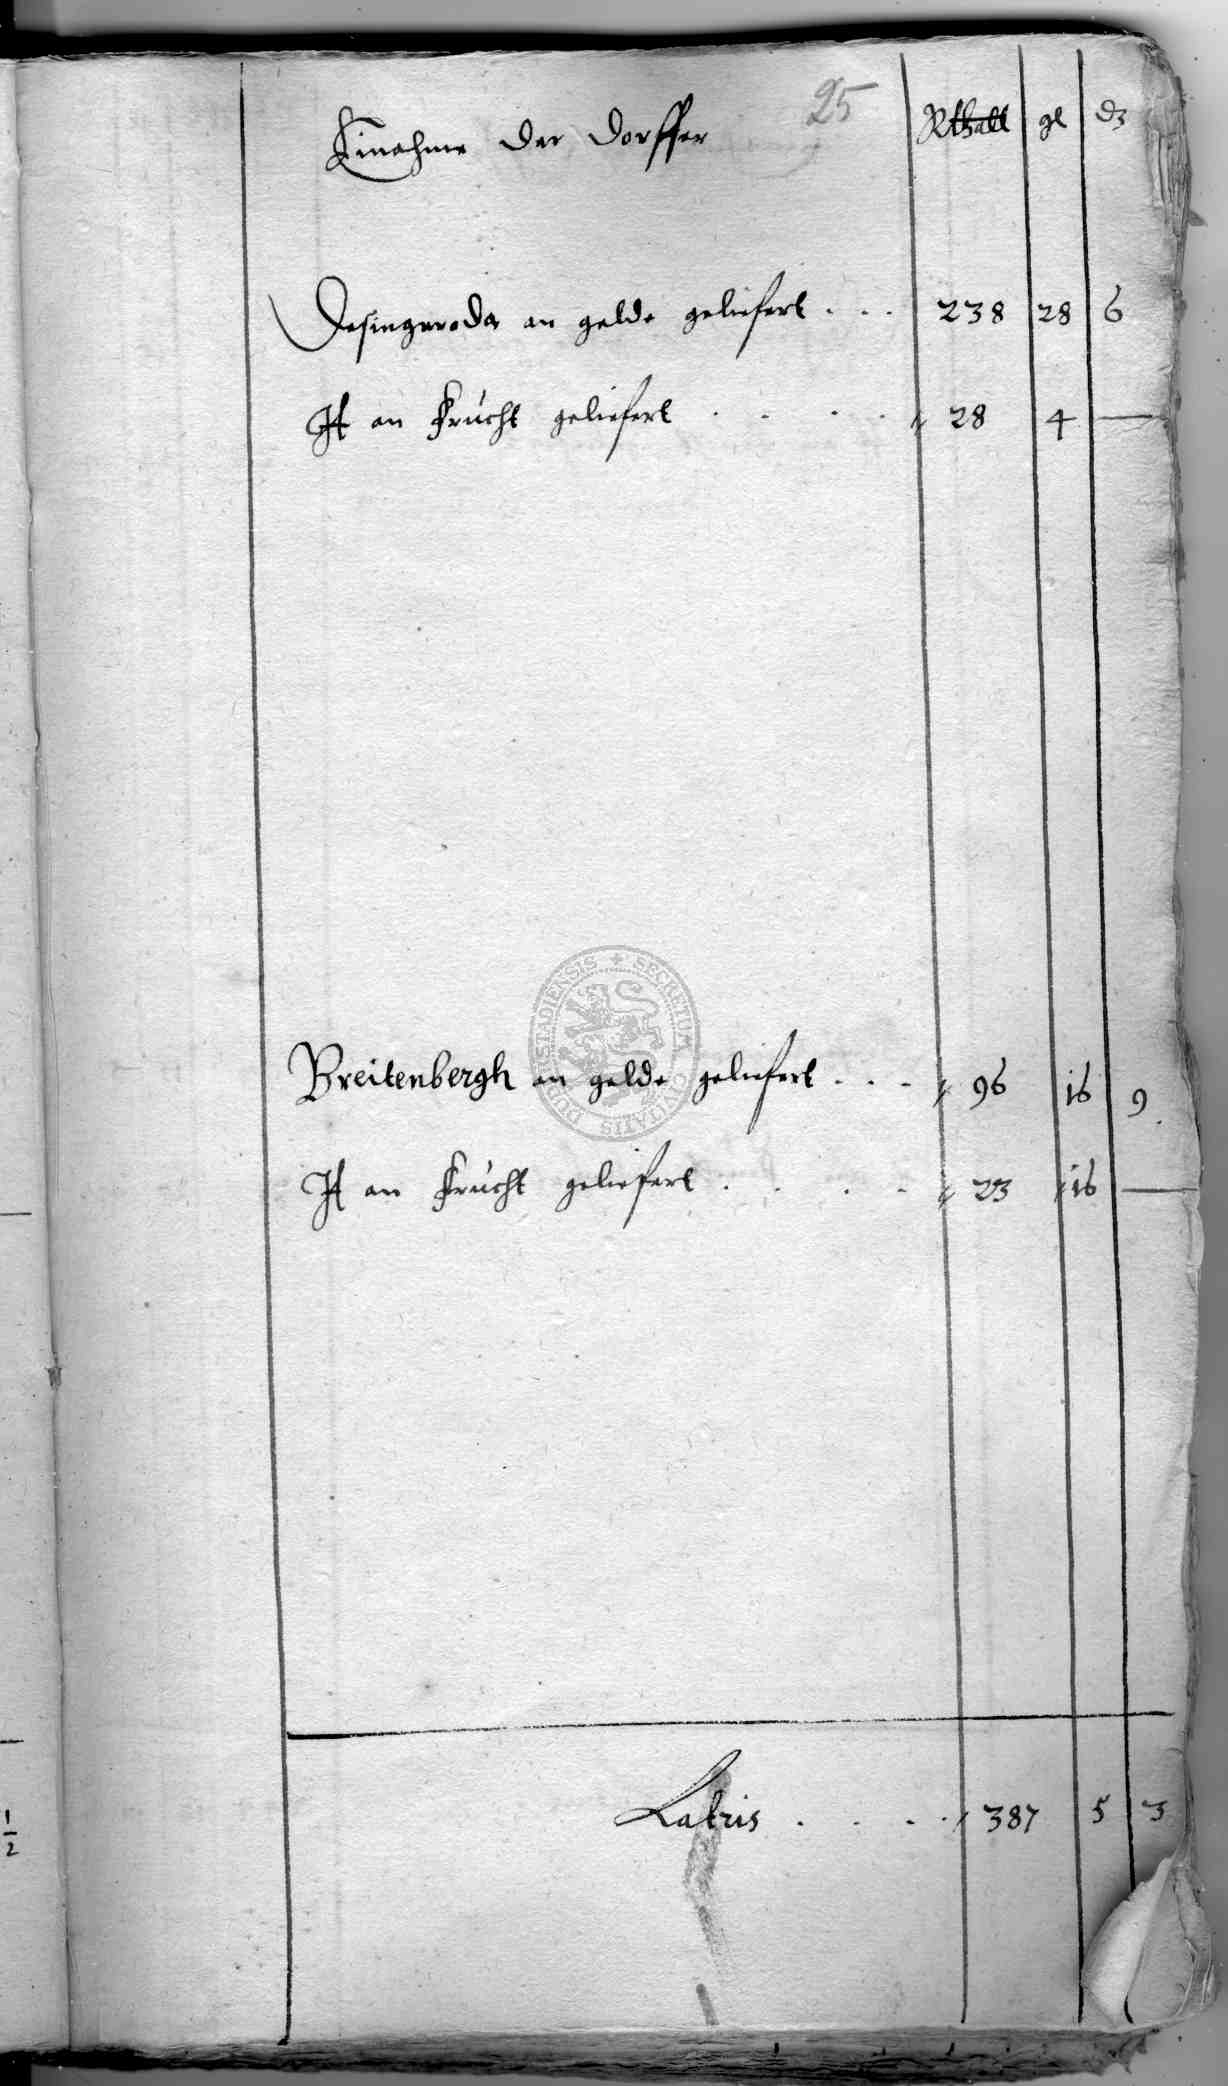 25
Einahme der Dorffer Rthall gl d
Desingeroda an gelde geliefert . . . 238 28 6
It an Frücht geliefert . . . . 28 4 —
Breitenbergh an gelde geliefert . . . 96 16 9
It an Frücht geliefert . . . . 23 16 —
Latris . . . . 387 5 3
1/2
SECRETUM CIVITATIS DUDERSTADIENSIS